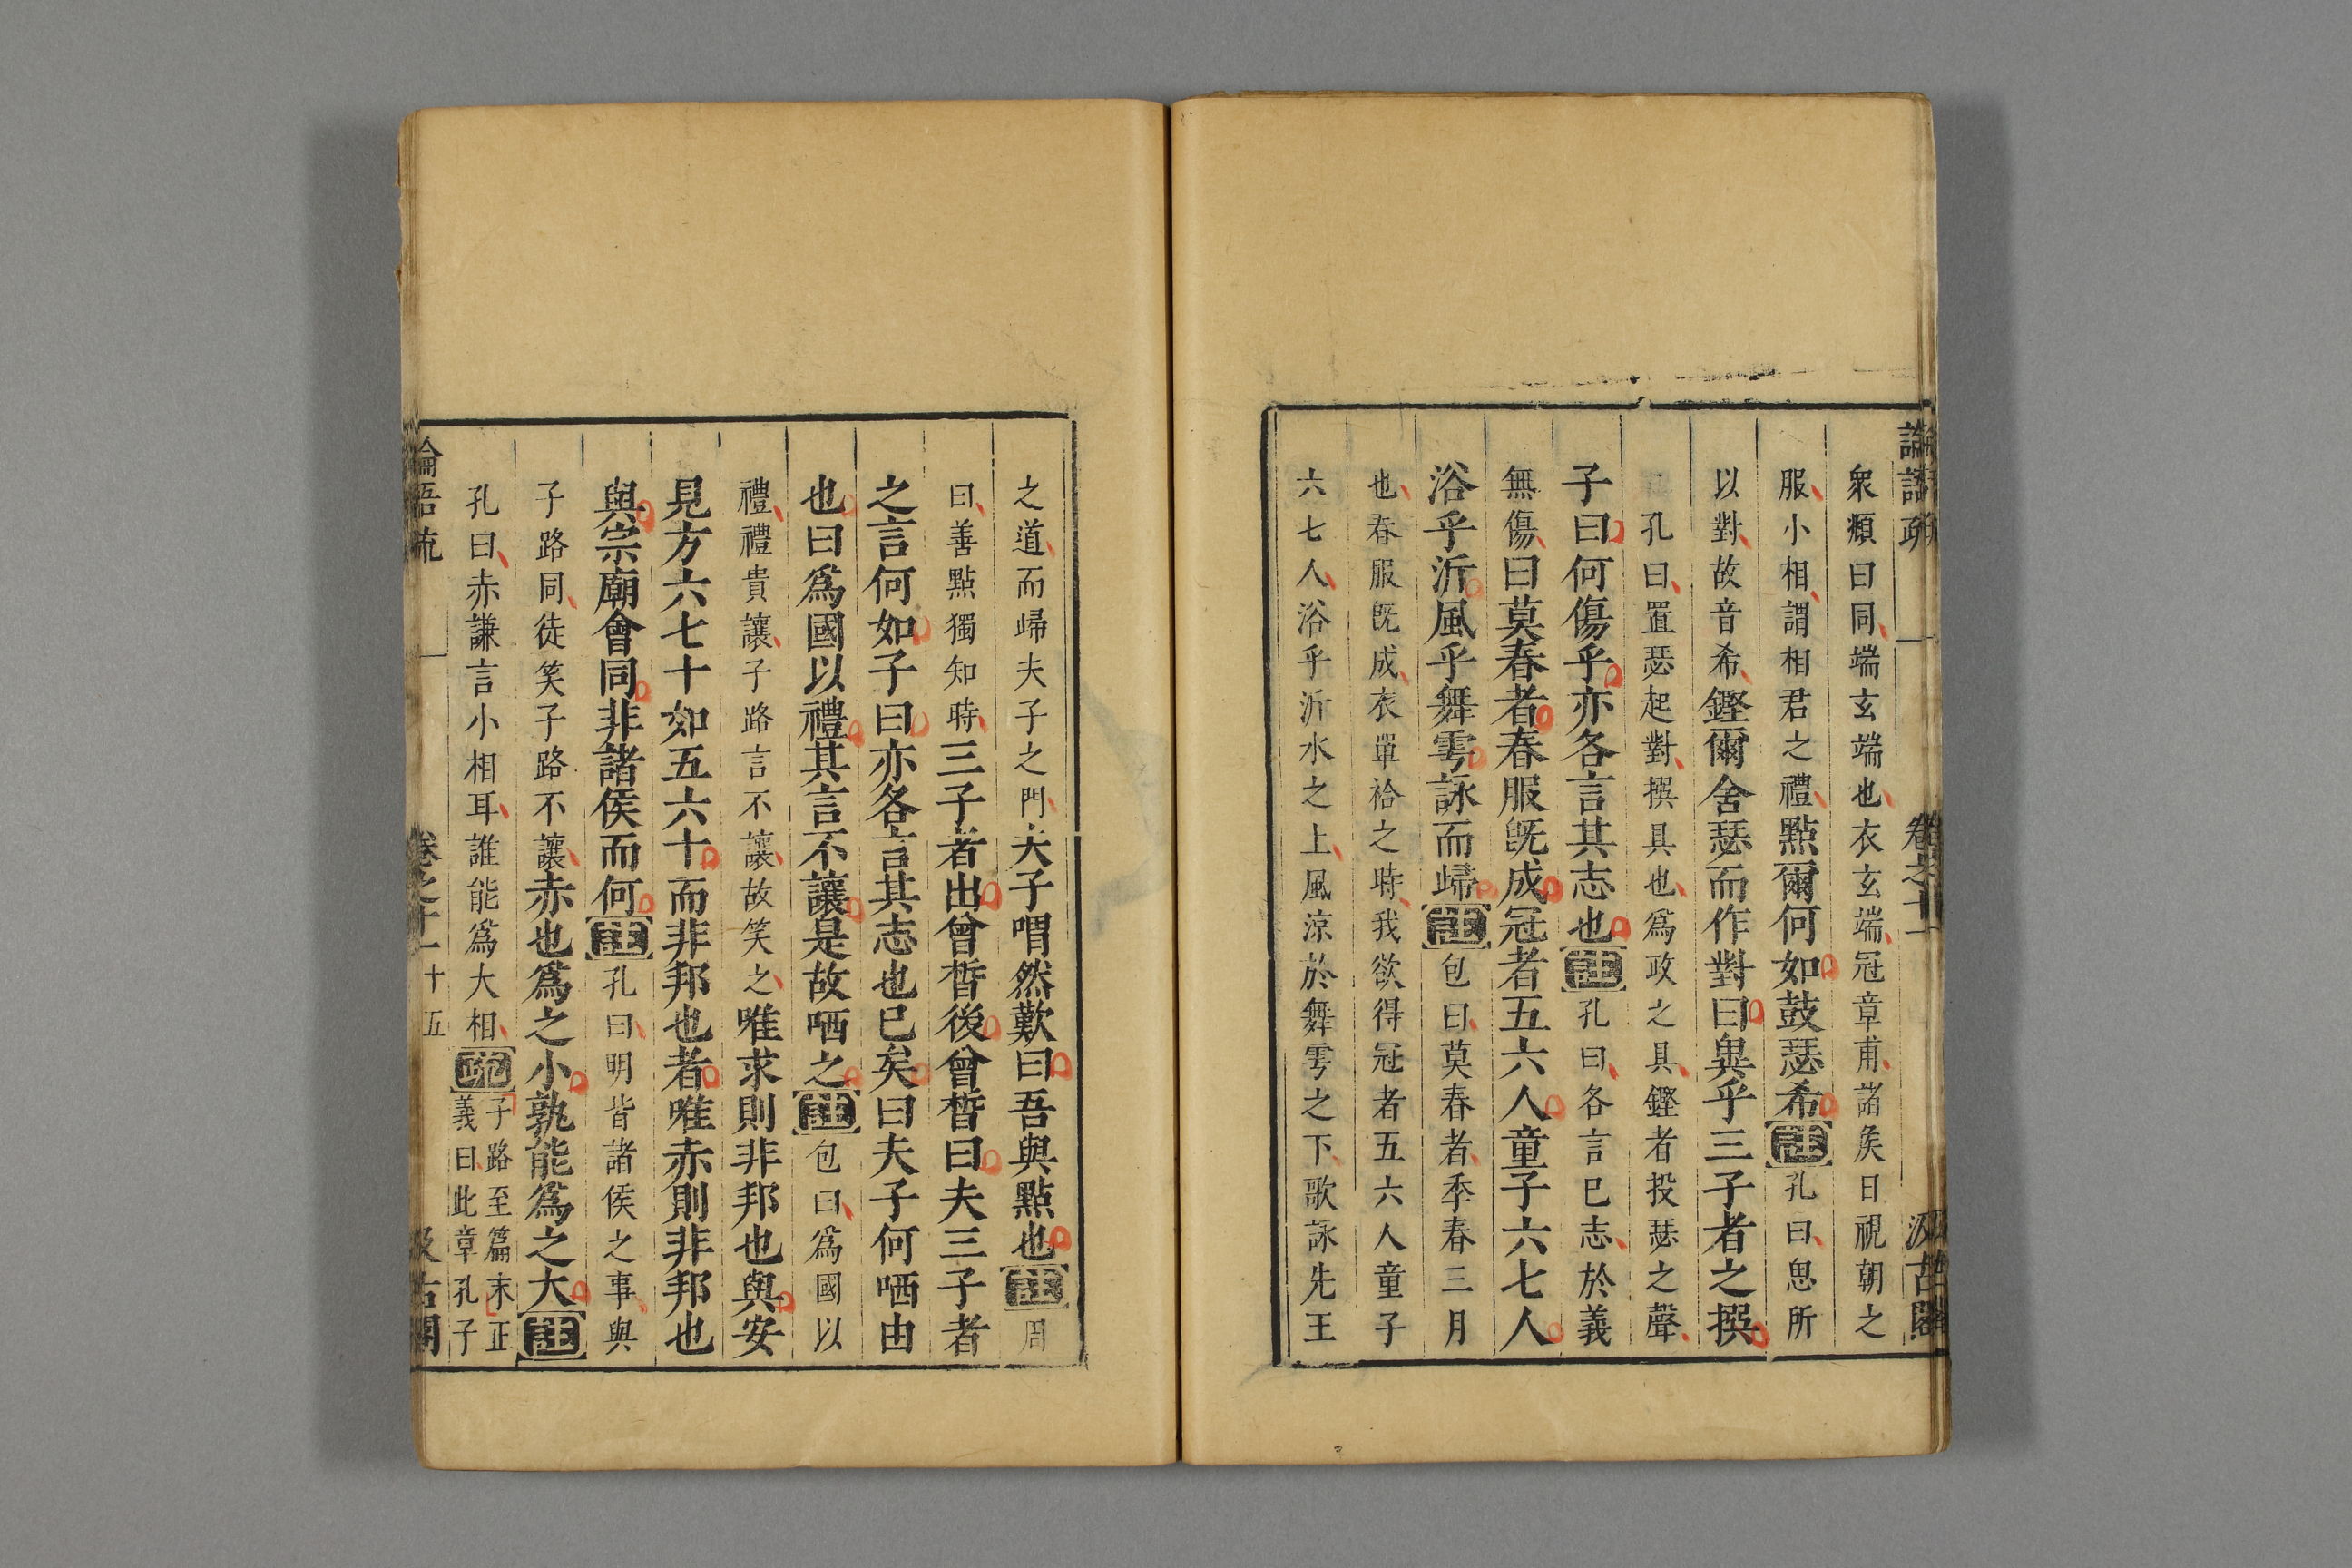 論語疏
卷之十一
汲古閣
衆頫曰同端玄端也衣玄端冠章甫諸矦日視朝之
服小相謂相君之禮點爾何如鼓瑟希註孔曰思所
以對故音希鏗爾舍瑟而作對曰異乎三子者之撰
孔曰置瑟起對撰具也爲政之具鏗者投瑟之聲
子曰何傷乎亦各言其志也註孔曰各言巳志於義
無傷曰莫春者春服旣成冠者五六人童子六七人
浴乎沂風乎舞雩詠而歸註包曰莫春者季春三月
也春服旣成衣單袷之時我欲得冠者五六人童子
六七人浴乎沂水之上風涼於舞雩之下歌詠先王
之道而歸夫子之門夫子喟然歎曰吾與點也註周
曰善點獨知時三子者出曾晳後曾晳曰夫三子者
之言何如子曰亦各言其志也巳矣曰夫子何哂由
也曰爲國以禮其言不讓是故哂之註包曰爲國以
禮禮貴讓子路言不讓故笑之唯求則非邦也與安
見方六七十如五六十而非邦也者唯赤則非邦也
與宗廟會同非諸侯而何註孔曰明皆諸侯之事與
子路同徒笑子路不讓赤也爲之小孰能爲之大註
孔曰赤謙言小相耳誰能爲大相疏子路至篇末正
義曰此章孔子
論語疏
卷之十一
十五
汲古閣